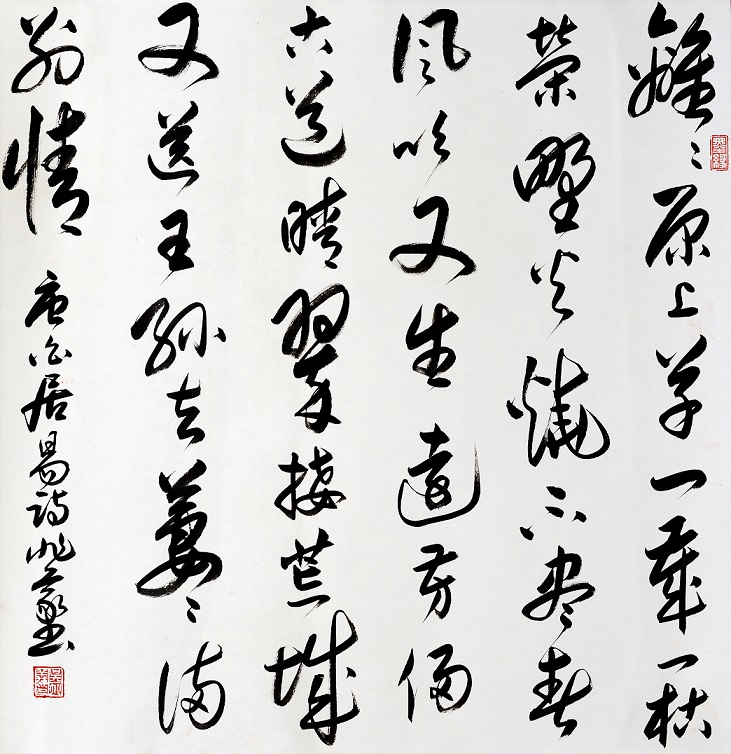 離〻原上草一歲一枯
榮野火燒不盡春
風吹又生遠芳侵
古道晴翠接荒城
又送王孫去萋〻滿
別情
唐白居易詩